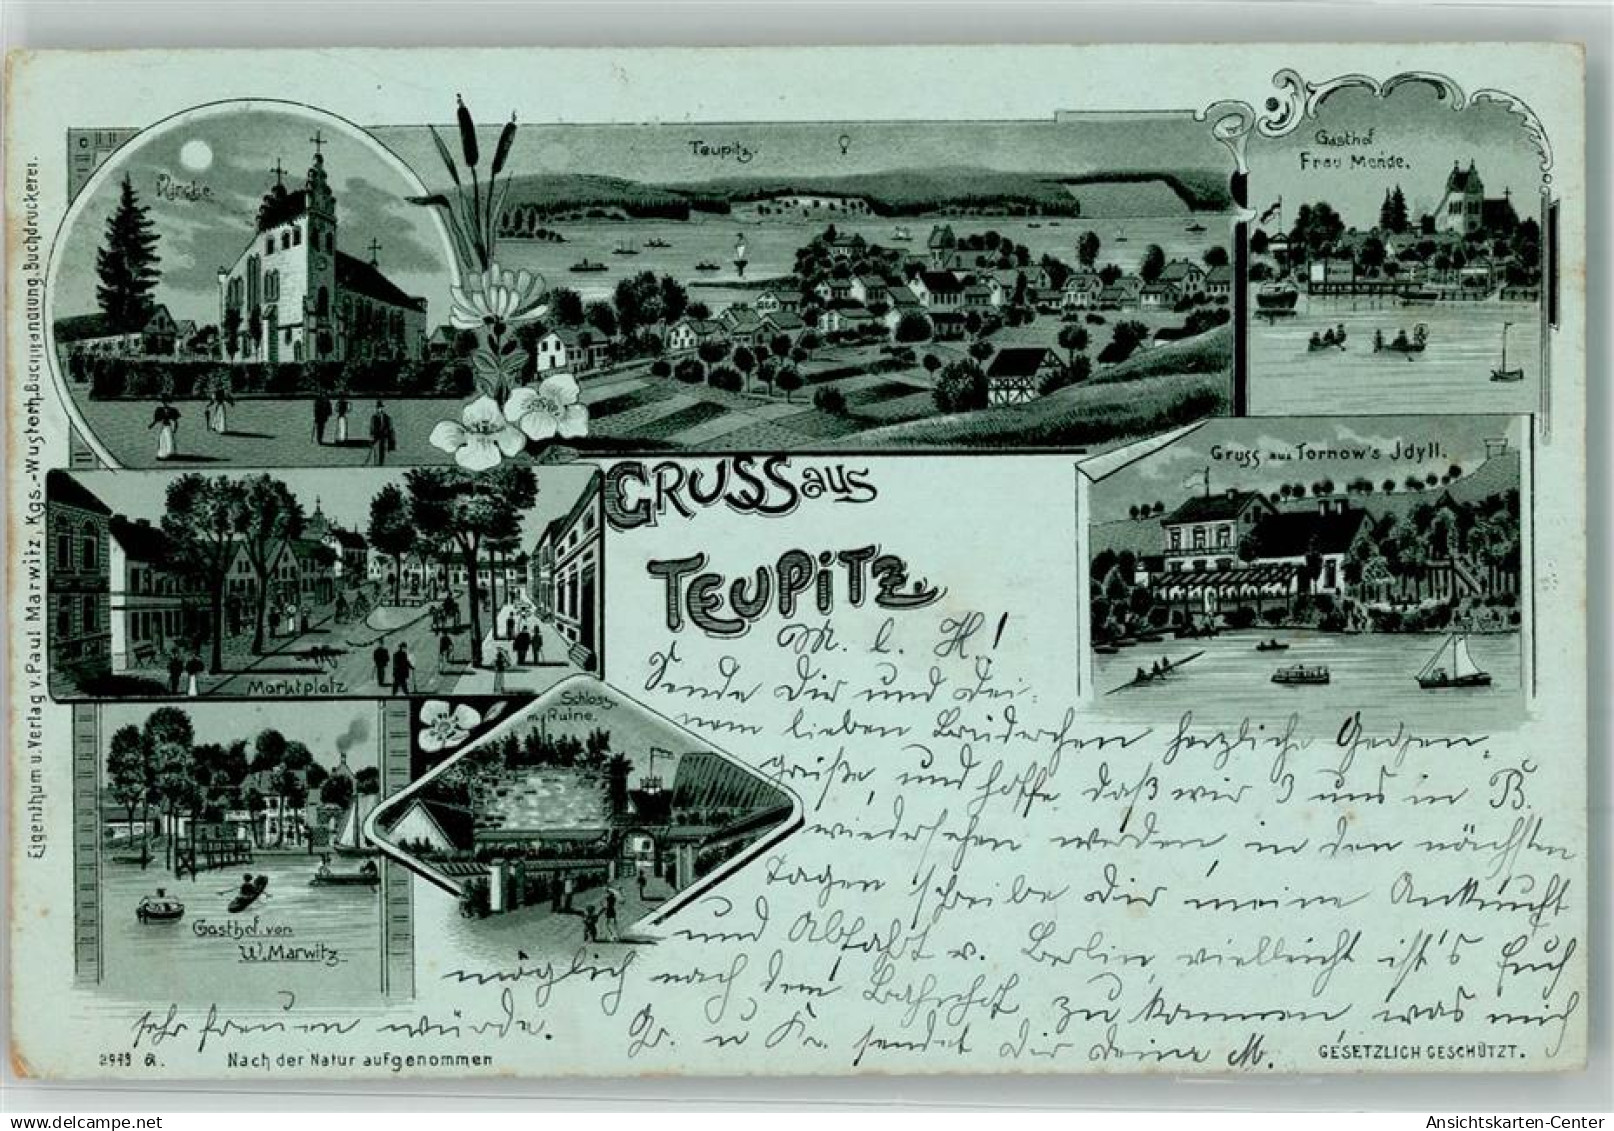 Kirche.
Teupitz.
Gasthof
Frau Mende.
Gruss aus Tornow's Jdyll.
Marktplatz
Schloss
m. Ruine.
Gasthof von
W. Marwitz
GRUSS aus
TEUPITZ.
M. l. H!
Sende Dir und Dei-
nem lieben Brüderchen herzliche Gegen-
grüße, und hoffe, daß wir 3 uns in B.
wiedersehen werden, in den nächsten
Tagen schreibe Dir meine Ankunft
und Abfahrt v. Berlin, vielleicht ist's Euch
möglich nach dem Bahnhof zu kommen, was mich
sehr freuen würde. Gr. u Kr. sendet Dir Deine M.
2973 a. Nach der Natur aufgenommen
GESETZLICH GESCHÜTZT.
Eigenthum u. Verlag v. Paul Marwitz, Kgs.-Wusterh. Buchhandlung, Buchdruckerei.
oldthing.de
Ansichtskarten-Center